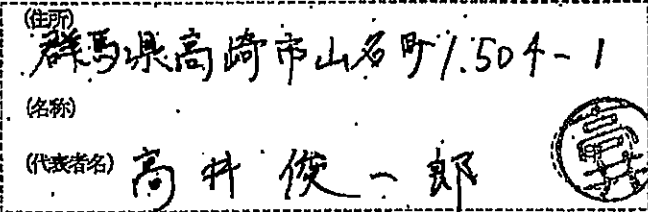 (住所)
群馬県高崎市山名町1,504-1
(名称)
(代表者名) 高井 俊一郎
高井